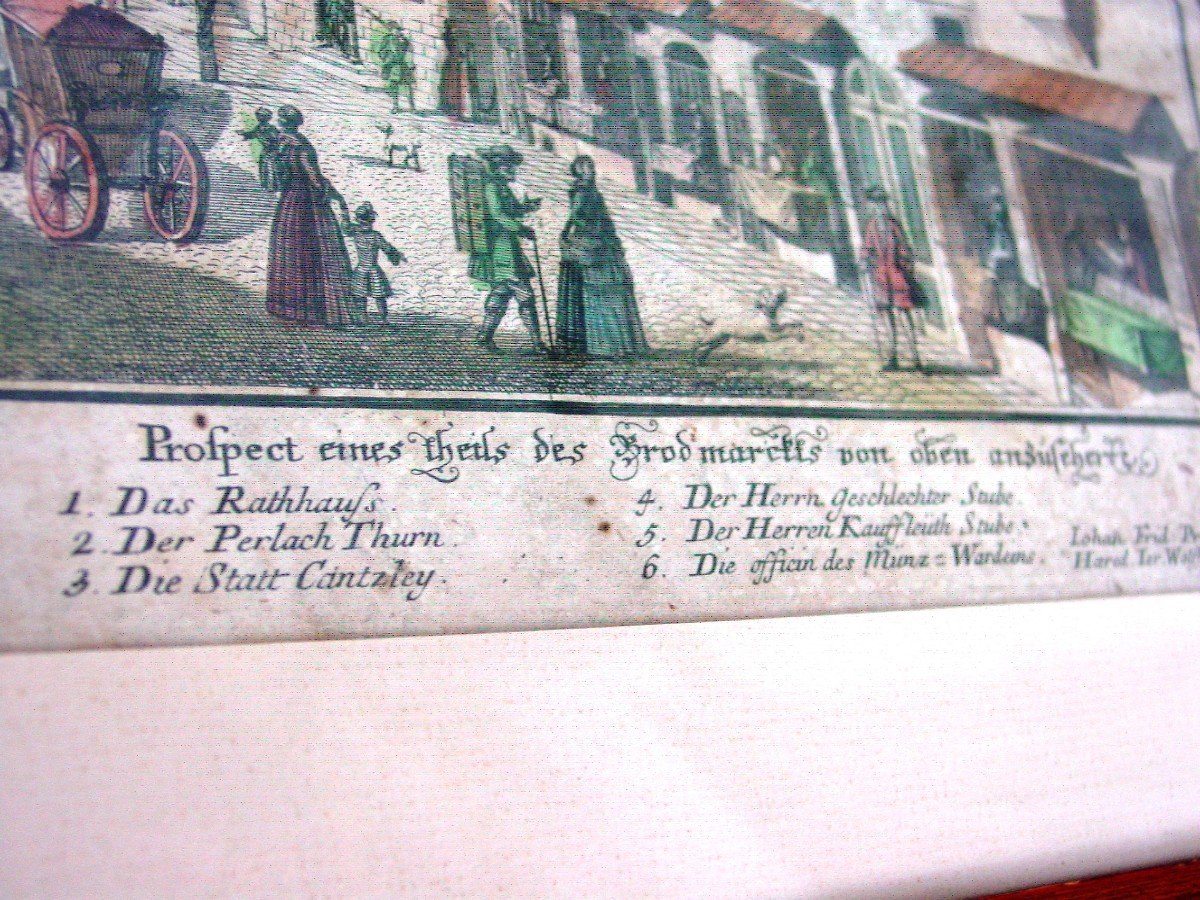 Proſpect eines theils des Brodmarckts von oben anzuſehen
1. Das Rathhauſs.
2. Der Perlach Thurn.
3. Die Statt Cantzley.
4. Der Herrn Geschlechter Stube.
5. Der Herren Kauffleüth Stube.
6. Die officin des Münz=Wardeins.
Iohañ Frid
Hered. Ier. Wolf